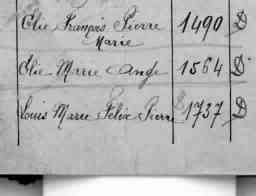 Elie François Pierre 1490 D
Marie
Elie Marie Ange 1564 D
Louis Marie Félix Pierre 1737 D